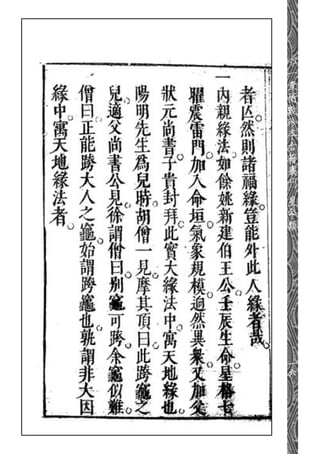 者仄然則諸福緣豈能外此人緣者哉
一內親緣法如餘姚新建伯王公壬辰生命星格七
曜震雷門加入命垣氣象規模迥然異衆又加父
狀元尚書子貴封拜此實大緣法中寓天地緣也
陽明先生爲兒時胡僧一見摩其頂曰此跨竈之
兒適父尚書公見徐謂僧曰別竈可跨余竈似難
僧曰正能跨大人之竈始謂跨竈也孰謂非大因
緣中寓天地緣法者